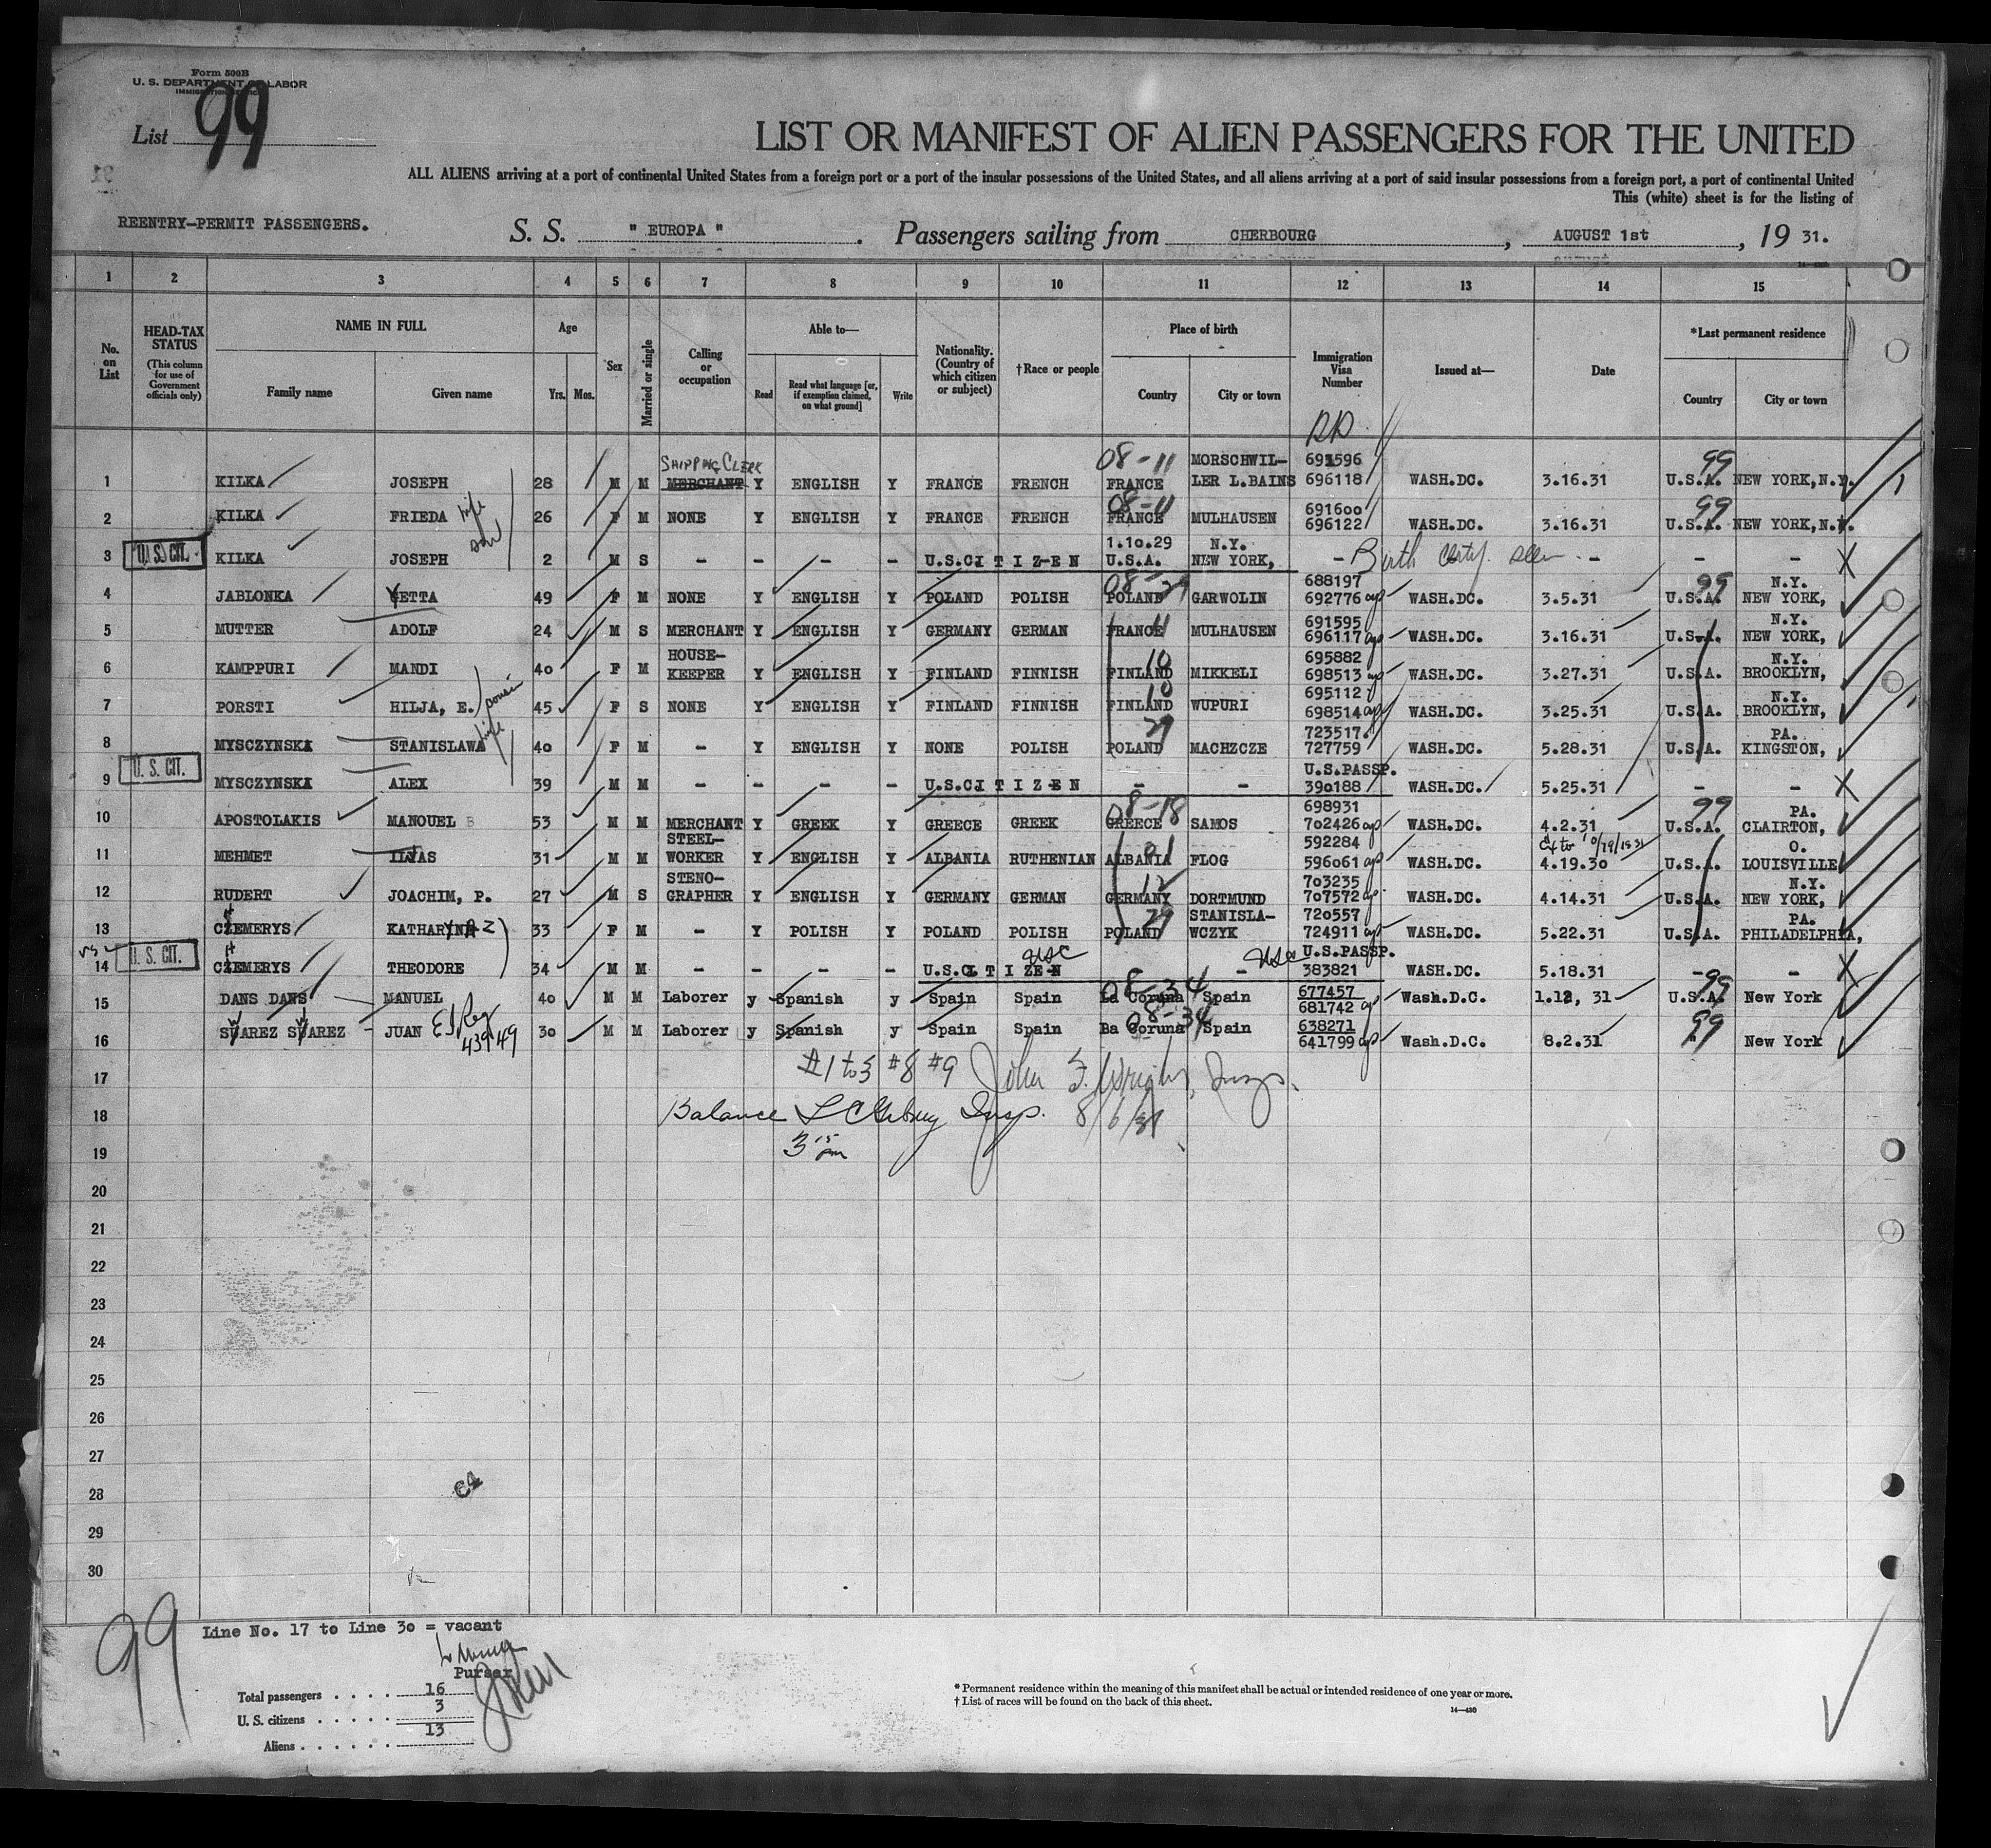 Form 500B
U. S. DEPARTMENT OF LABOR
IMMIGRATION SERVICE
List 99
LIST OR MANIFEST OF ALIEN PASSENGERS FOR THE UNITED
ALL ALIENS arriving at a port of continental United States from a foreign port or a port of the insular possessions of the United States, and all aliens arriving at a port of said insular possessions from a foreign port, a port of continental United
This (white) sheet is for the listing of
REENTRY-PERMIT PASSENGERS.
S. S. " EUROPA ". Passengers sailing from CHERBOURG, AUGUST 1st, 19 31.
1 2 3 4 5 6 7 8 9 10 11 12 13 14 15
No. on List
HEAD-TAX STATUS (This column for use of Government officials only)
NAME IN FULL
Family name Given name
Age
Yrs. Mos.
Sex
Married or single
Calling or occupation
Able to—
Read Read what language [or, if exemption claimed, on what ground] Write
Nationality. (Country of which citizen or subject)
†Race or people
Place of birth
Country City or town
Immigration Visa Number
Issued at—
Date
*Last permanent residence
Country City or town
SHIPPING CLERK 08-11 MORSCHWIL- 691596 99
1 KILKA JOSEPH 28 M M MERCHANT Y ENGLISH Y FRANCE FRENCH FRANCE LER L.BAINS 696118 WASH.DC. 3.16.31 U.S.A. NEW YORK,N.Y.
wife 08-11 691600 99
2 KILKA FRIEDA 26 F M NONE Y ENGLISH Y FRANCE FRENCH FRANCE MULHAUSEN 696122 WASH.DC. 3.16.31 U.S.A. NEW YORK,N.Y.
son 1.10.29 N.Y.
3 U.S. CIT. KILKA JOSEPH 2 M S - - - - U.S.CITIZEN U.S.A. NEW YORK, - Birth Certif. seen - - -
08-29 688197 99 N.Y.
4 JABLONKA YETTA 49 F M NONE Y ENGLISH Y POLAND POLISH POLAND GARWOLIN 692776 WASH.DC. 3.5.31 U.S.A. NEW YORK,
11 691595 N.Y.
5 MUTTER ADOLF 24 M S MERCHANT Y ENGLISH Y GERMANY GERMAN FRANCE MULHAUSEN 696117 WASH.DC. 3.16.31 U.S.A. NEW YORK,
HOUSE- 10 695882 N.Y.
6 KAMPPURI MANDI 40 F M KEEPER Y ENGLISH Y FINLAND FINNISH FINLAND MIKKELI 698513 WASH.DC. 3.27.31 U.S.A. BROOKLYN,
cousin 10 695112 N.Y.
7 PORSTI HILJA, E. 45 F S NONE Y ENGLISH Y FINLAND FINNISH FINLAND WUPURI 698514 WASH.DC. 3.25.31 U.S.A. BROOKLYN,
wife 29 723517. PA.
8 MYSCZYNSKI STANISLAWA 40 F M - Y ENGLISH Y NONE POLISH POLAND MACHZCZE 727759 WASH.DC. 5.28.31 U.S.A. KINGSTON,
U.S.PASSP.
9 U. S. CIT. MYSCZYNSKI ALEX 39 M M - - - - U.S.CITIZEN - - 390188 WASH.DC. 5.25.31 - -
08-18 698931 99 PA.
10 APOSTOLAKIS MANOUEL B 53 M M MERCHANT Y GREEK Y GREECE GREEK GREECE SAMOS 702426 WASH.DC. 4.2.31 U.S.A. CLAIRTON,
STEEL- 01 592284 O.
11 MEHMET ILYAS 31 M M WORKER Y ENGLISH Y ALBANIA RUTHENIAN ALBANIA FLOG 596061 WASH.DC. 4.19.30 U.S.A. LOUISVILLE
STENO- 12 703235 N.Y.
12 RUDERT JOACHIM, P. 27 M S GRAPHER Y ENGLISH Y GERMANY GERMAN GERMANY DORTMUND 707572 WASH.DC. 4.14.31 U.S.A. NEW YORK,
29 STANISLA- 720557 PA.
13 CZEMERYS KATHARYNA 33 F M - Y POLISH Y POLAND POLISH POLAND WCZYK 724911 WASH.DC. 5.22.31 U.S.A. PHILADELPHIA,
USC USC U.S.PASSP.
14 U. S. CIT. CZEMERYS THEODORE 34 M M - - - - U.S.CITIZEN - 383821 WASH.DC. 5.18.31 - -
08-34 677457 99
15 DANS DANS MANUEL 40 M M Laborer y Spanish y Spain Spain La Coruna Spain 681742 Wash.D.C. 1.12, 31 U.S.A. New York
08-34 638271 99
16 SUAREZ SUAREZ - JUAN 43949 30 M M Laborer y Spanish y Spain Spain Ba Coruna Spain 641799 Wash.D.C. 8.2.31 " New York
17 #1 to 3 #8 #9 John F. Wright, Insp.
18 Balance Insp. 8/6/31
19 3 15 pm
20
21
22
23
24
25
26
27
28
29
30
99
Line No. 17 to Line 30 = vacant
Purser
Total passengers . . . . 16
U. S. citizens . . . . . 3
Aliens . . . . . . 13
* Permanent residence within the meaning of this manifest shall be actual or intended residence of one year or more.
† List of races will be found on the back of this sheet.
14—430